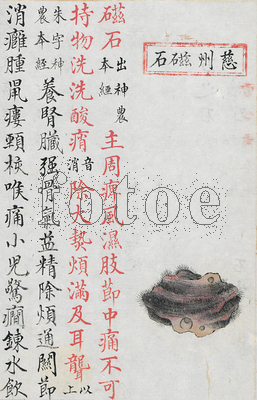 慈州磁石
磁石出神農本經主周痹風濕肢節中痛不可
持物洗洗酸痟音消除大熱煩滿及耳聾以上
朱字神農本經養腎臟强骨氣益精除煩通關節
消癰腫鼠瘻頸核喉痛小兒驚癇鍊水飲
fotoe